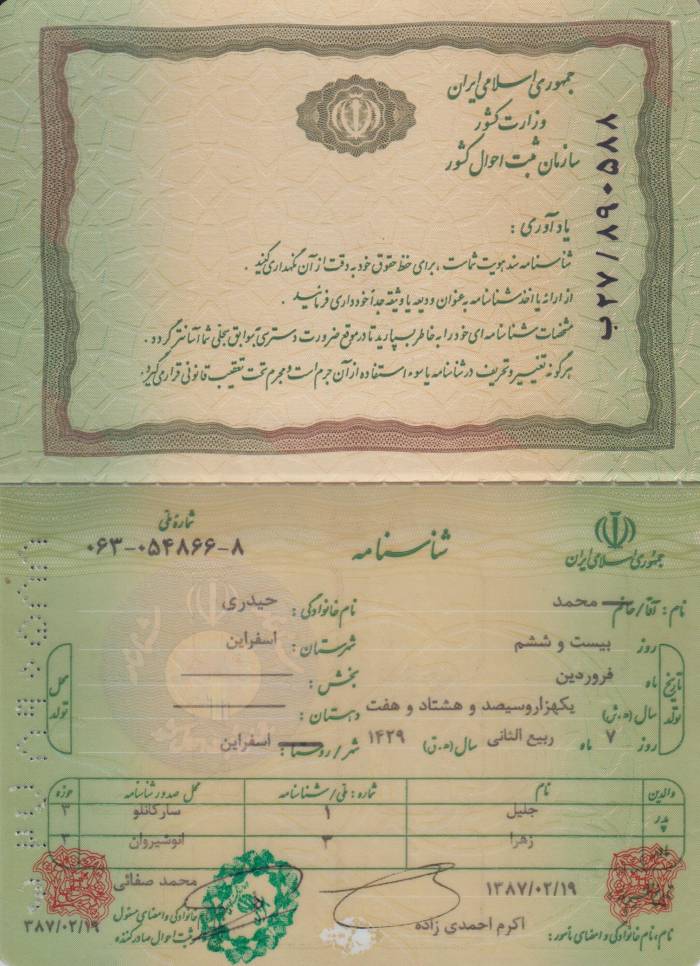 جمهوری اسلامی ایران
وزارت کشور
سازمان ثبت احوال کشور
ب۲۷/۸۹۰۵۸۸
یادآوری :
شناسنامه سند هویت شماست ، برای حفظ حقوق خود به دقت از آن نگهداری کنید .
از ارائه یا اخذ شناسنامه به عنوان ودیعه یا وثیقه جداً خودداری فرمائید .
مشخصات شناسنامه ای خود را به خاطر بسپارید تا در موقع ضرورت دسترسی به سوابق سجلی شما آسانتر گردد .
هرگونه تغییر و تحریف در شناسنامه یا سوء استفاده از آن جرم است و مجرم تحت تعقیب قانونی قرار می گیرد.
جمهوری اسلامی ایران
شناسنامه
شماره ملی
۰۶۳-۰۵۴۸۶۶-۸
نام : آقا/خانم محمد نام خانوادگی : حیدری
تاریخ تولد
روز بیست و ششم
ماه فروردین
سال (ه.ش) یکهزاروسیصد و هشتاد و هفت
روز ۷ ماه ربیع الثانی سال (ه.ق) ۱۴۲۹
محل تولد
شهرستان : اسفراین
بخش :
دهستان :
شهر/روستا : اسفراین
والدین نام شماره : ملی/شناسنامه محل صدور شناسنامه حوزه
پدر جلیل ۱ سارکانلو ۳
زهرا ۳ انوشیروان ۳
۱۳۸۷/۰۲/۱۹
اکرم احمدی زاده
نام، نام خانوادگی و امضای مأمور:
محمد صفائی
نام خانوادگی و امضای مسئول
ثبت احوال صادرکننده
۳۸۷/۰۲/۱۹